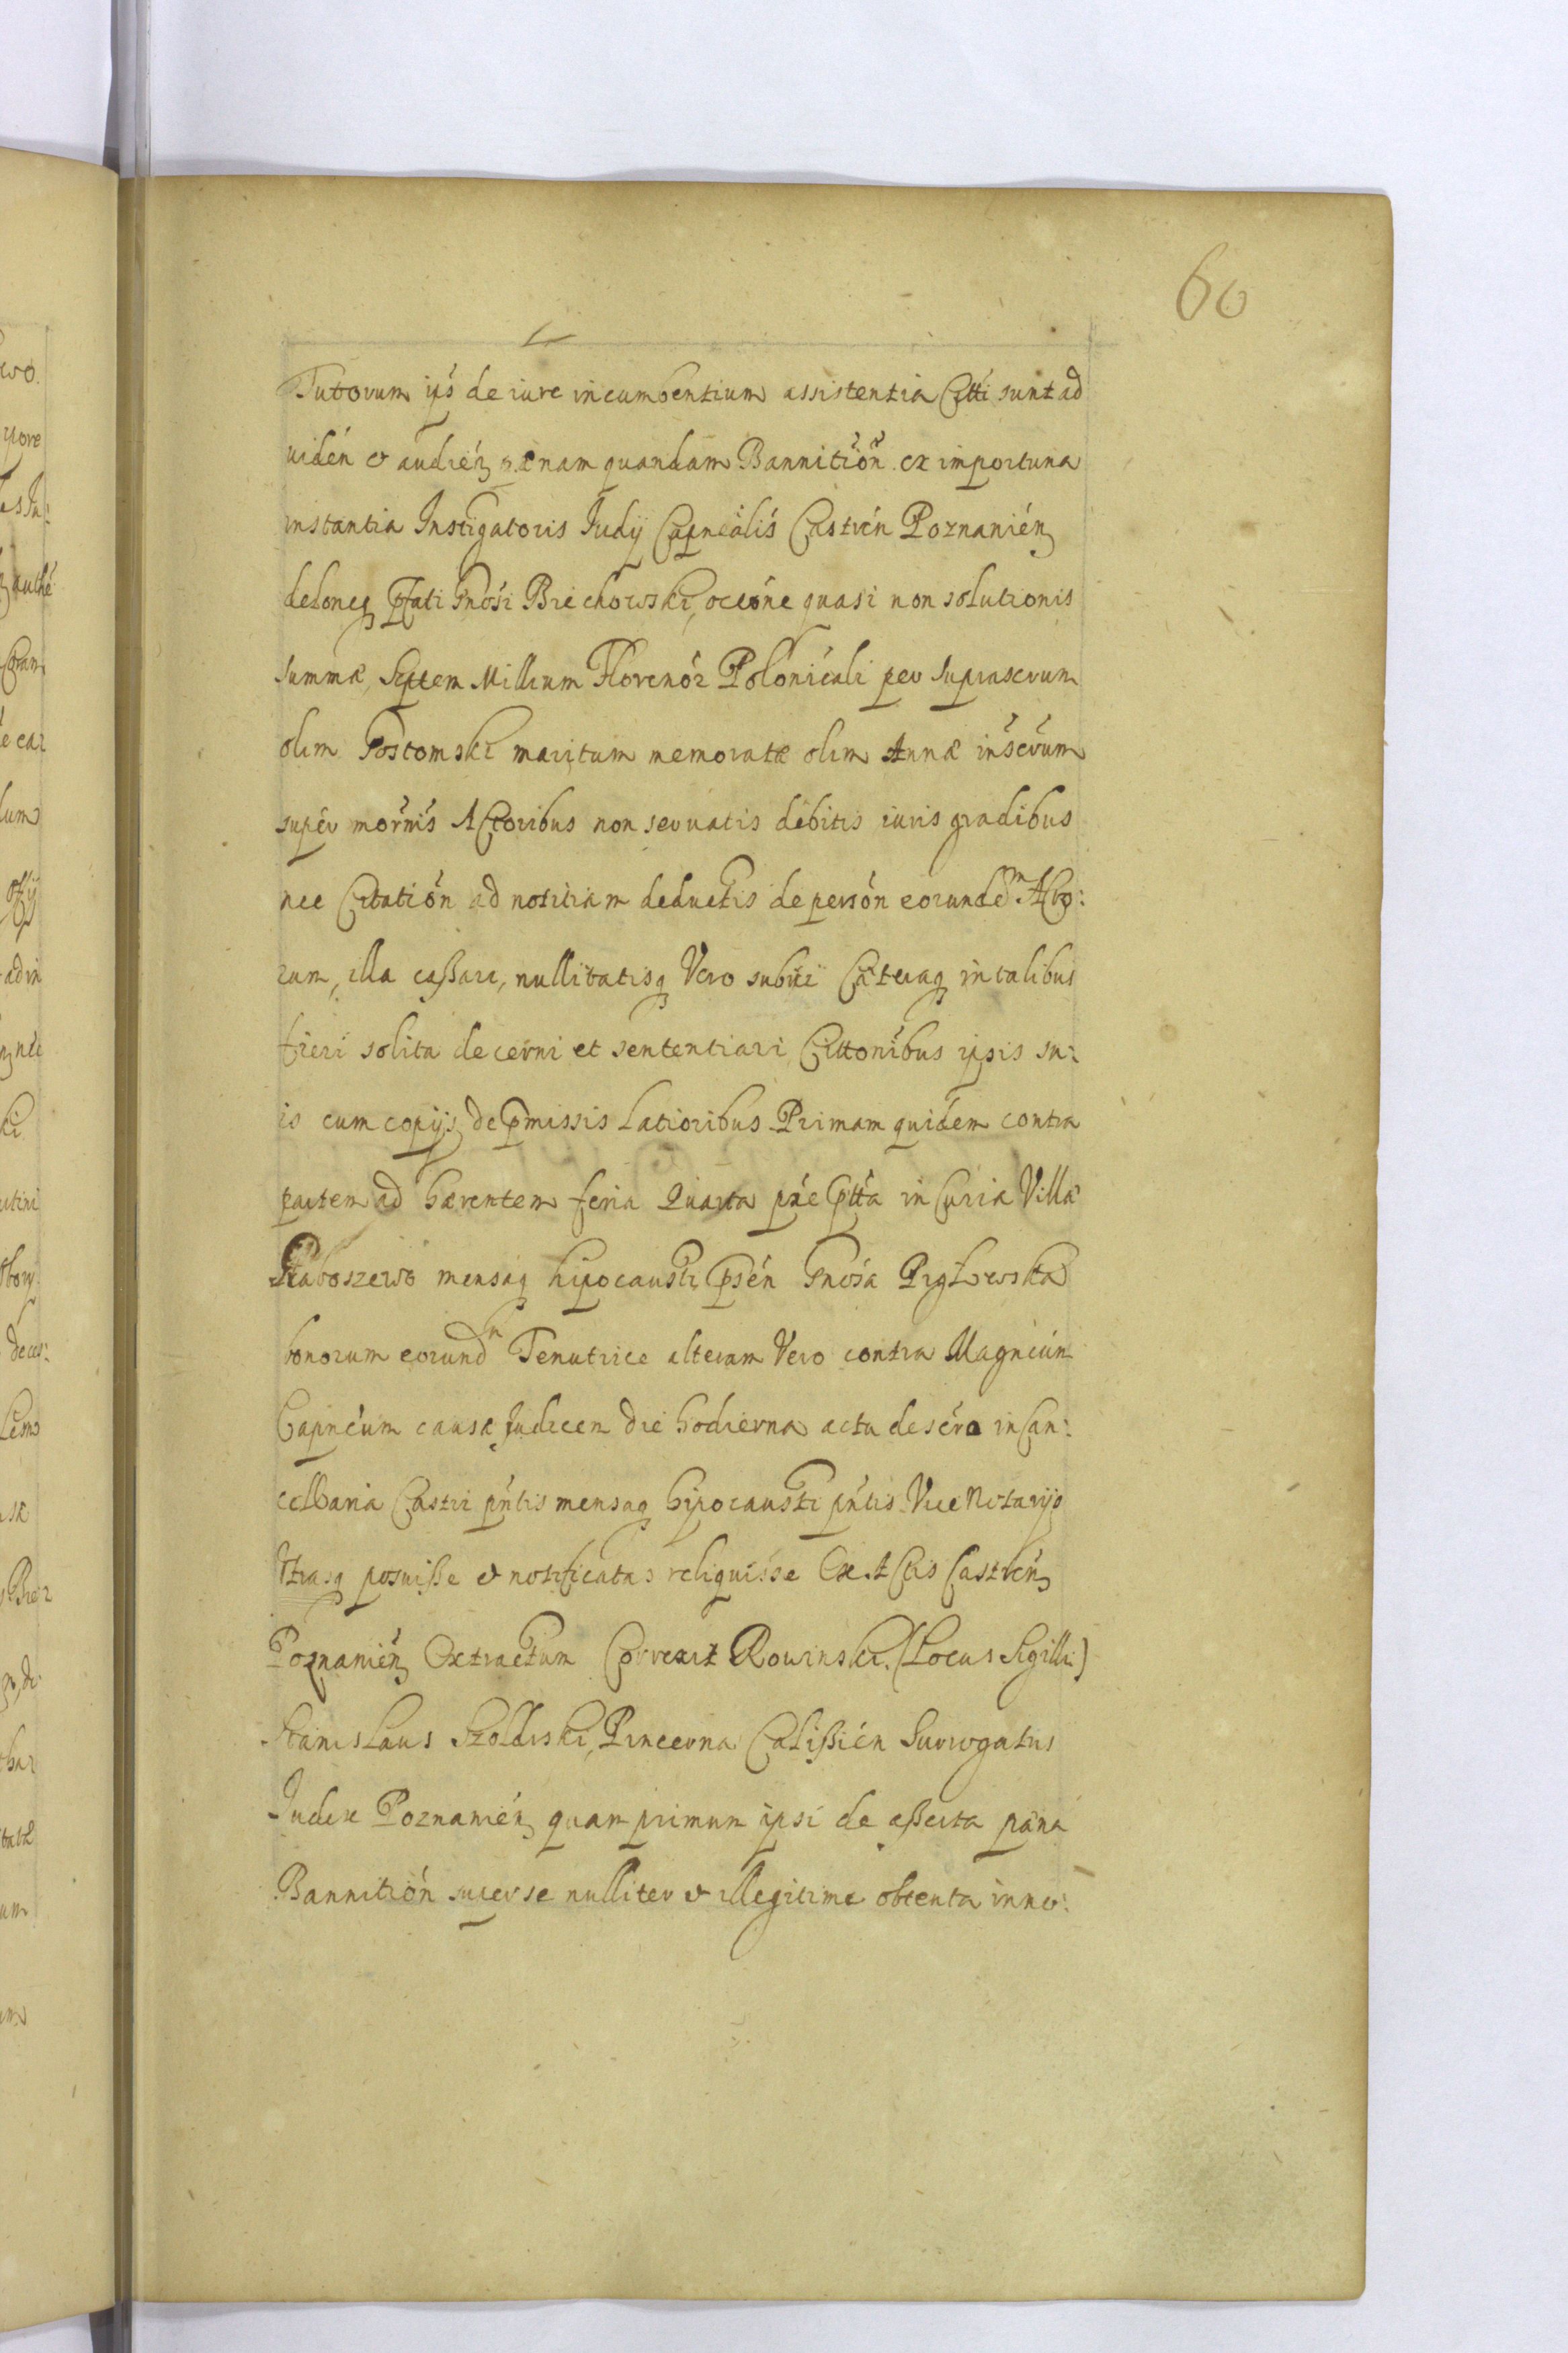 60
Tutorum ijs de iure incumbentium assistentia Citti sunt ad
uidén & audién pænam quandam Bannitiön ex importuna
instantia Instigatoris Judÿ Capnëalis Castrén Poznanién
deloneq pfati Gnosi Biechowski, occöne quasi non solutionis
summæ, Septem Millium Florenór Polonicali per suprascrum
olim Gostomski maritum memoratæ olim Annæ inscrum
super mornis Actoribus non seruatis debitis iuris gradibus
nec Citatión ad notitiam deductis de persón eorundem Acto:
rum, illa caßari, nullitatisq Vero subici Cæteraq in talibus
fieri solita decerni et sententiari Cittonibus ipsis su:
is cum copijs de pmissis latioribus Primam quidem contra
partem ad hærentem feria Quarta præ ptta in Curia Villæ
Raboszewo mensaq hipocausti psén Gnosa Prgłowska
bonorum eorundm Tenutrice alteram Vero contra Magnicun
Capnéum causæ Judicem die hodierna actu descra in Can:
cellaria Castri pntis mensaq hipocausti pntis Vice Notarijs
Vtrasq posuiße & notificatas reliquisse Ex Actis Castrén
Poznanién Extractum Correxit Rowinski. (Locus Sigilli)
Stanislaus Szoldrski, Pincerna Calißién Surrogatus
Judex Poznanién quam primum ipsi de aßerta pæna
Bannitión super se nulliter & illegitime obtenta inno: